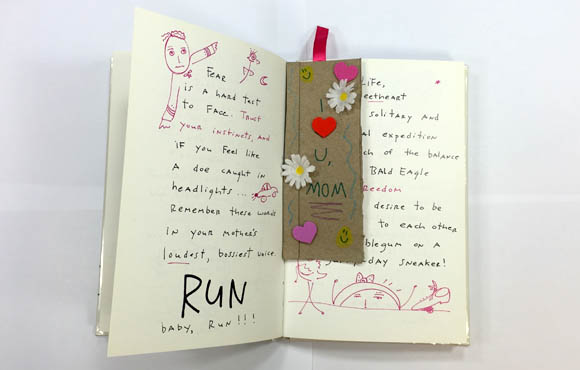 FEAR
is A HARD TAST
to FACE. TRUST
your instincts, and
iF you FEEL like
A doe caught in
headlights...
Remember these words
in your mother's
loudest, bossiest voice.
RUN
baby, RUN!!!
I
U,
MOM
LiFe,
eetheart
solitary and
al expedition
ch of the balance
BALD EAGLE
reedom
desire to be
to each other
blegum on a
day sneaker!